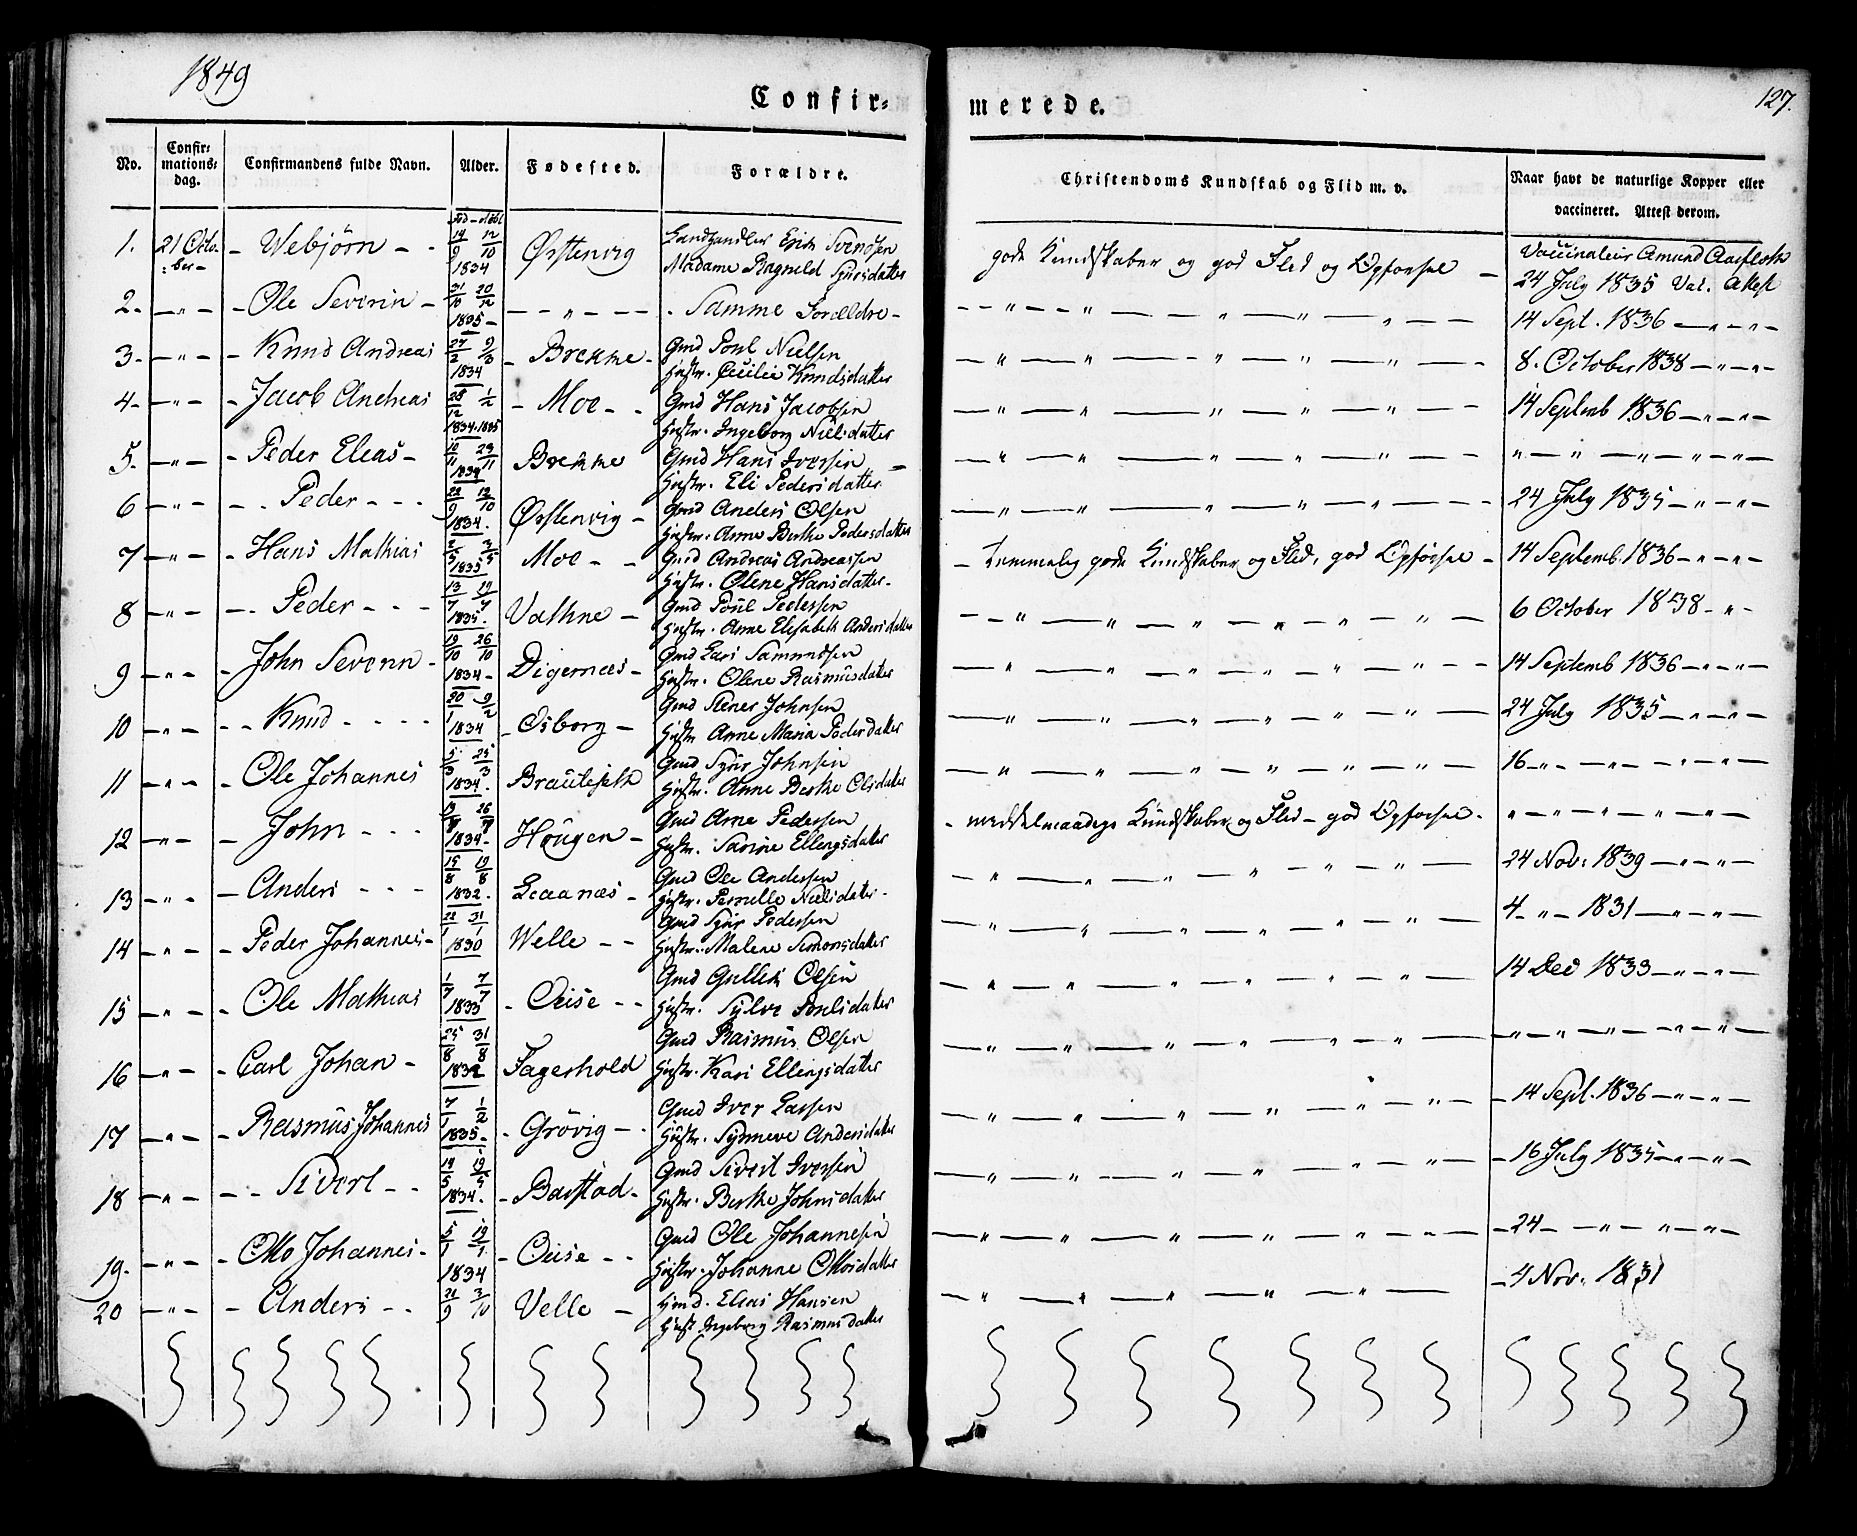 1849
Confir=
merede.
127.
No.
Confir=
mations=
dag.
Confirmandens fulde Navn.
Alder.
Fødested.
Forældre.
Christendoms Kundskab og Flid m. v.
Naar havt de naturlige Kopper eller
vaccineret. Attest derom.
fød - døbt
1. 21 Octo- - Webjörn - - 14/9 12/10 Ørstenvig Landhandler Erik Svendsen gode Kundskaber og god Flid og Opførsel - Vaccinateur Amund Aarfloth
:ber- 1834 Madame Ragnild Sjursdatter 24 July 1835 Vac. Attest
2. - " - - Ole Severin - 31/10 20/12 - - " - - - Samme Forældre - - - " - - - " - " - " - - 14 Sept. 1836 - " - " -
1835 -
3. - " - - Knud Andreas 27/2 9/3 - Brekke - Gmd Poul Nielsen - " - " - " - " - " - - 8. October 1838 - " - " -
1834 Hustr. Cecilie Knudsdatter
4. - " - - Jacob Andreas 28/12 1/2 - Moe - - Gmd Hans Jacobsen - " - " - " - " - " - - 14 Septemb 1836 - " - " -
1834. 1835 Hustr. Ingeborg Nielsdatter
5. - " - - Peder Elias - 29/11 Brekke Gmd Hans Iversen - " - " - " - " - " - - " - " - " - " - " -
1834 Hustr. Eli Pedersdatter
6 - " - - . Peder - - - 22/9 12/10 Ørstenvig - Gmd Anders Olsen - " - " - " - " - " - - 24 July 1835 - " - " -
1834. Hustr. Anne Berthe Pedersdatter
7 - " - - Hans Mathias Moe - - Gmd Andreas Andreassen - Temmelig gode Kundskaber og Flid, god Opførsel - 14 Septemb. 1836 - " - " -
1835 Hustr. Olene Hansdatter -
8 - " - - . Peder - - - 13/7 19/7 Vathne - Gmd Poul Pedersen - " - " - " - " - " - " - 6 October 1838 - " -
1835. Hustr. Anne Elisabeth Andersdatter
9 - " - - John Severin - 19/10 26/10 Digernæs - Gmd Lars Samundsen - " - " - " - " - " - - 14 Septemb 1836 - " - " -
1834 - Hustr. Olene Rasmusdatter
10 - " - - - Knud - - - - 20/1 9/2 - Osborg - Gmd Stener Johnsen - " - " - " - " - " - " - 24 July 1835 - " - " -
1834 Hustr Anne Maria Pedersdatter
11 - " - - Ole Johannes 5/3 25/3 Brautesæth Gmd Sjur Johnsen - " - " - " - " - " - " - 16 - " - " - " -
1834. Hustr. Anne Berthe Olsdatter
12 - " - - John - - - Hougen - Gmd Arne Pedersen - middelmaadige Kundskaber og Flid - god Opførsel. " - " - " - " - " -
1834. Hustr. Sarine Ellingsdatter
13 - " - - Anders - - - 15/8 19/8 Leaanæs - Gmd Ole Andersen - " - " - " - " - " - " - 24 Nov. 1839 - " - " -
1832. Hustr. Pernille Nielsdatter -
14 - " - - Peder Johannes - 22/1 31/1 Welle - - Gmd Sjur Pedersen - " - " - " - " - " - " - 4 - " - 1831 - " - " -
1830 Hustr. Malene Simonsdatter
15 - " - - Ole Mathias 1/7 7/7 - Oeise - - Gmd Gullek Olsen - " - " - " - " - " - " - 14 Dec 1833 - " - " -
1833 Hustr. Sylve Poulsdatter
16 - " - - Carl Johan - 25/8 31/8 Fagerhold Gmd Rasmus Olsen - " - " - " - " - " - " - " - " - " - " - " -
1832 Hustr. Kari Ellingsdatter
17 - " - - Rasmus Johannes 7/1 1/2 - Grövig - - Gmd Iver Larsen - " - " - " - " - " - " - - 14 Sept. 1836 - " - " -
1835 - Hustr. Synneve Andersdatter
18 - " - - - Sivert - - 14/5 19/5 - Barstad - Gmd Sivert Iversen - " - " - " - " - " - " - - 16 July 1835 - " - " -
1834. Hustr. Berthe Johnsdatter
19. - " - - Otto Johannes - 5/1 19/1 - Oeise - - Gmd Ole Johannesen - " - " - " - " - " - " - - 24 - " - " - " -
1834 Hustr. Johanne Ottosdatter
20 - " - - Anders - - 21/9 3/10 Velle - Hmd. Elias Hansen - " - " - " - " - " - - 4 Nov. 1831
Hustr Ingeborg Rasmusdatter